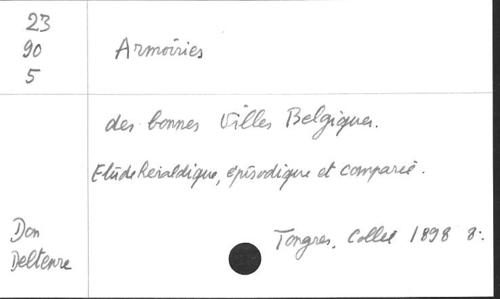 23
90
5
Armoiries
des bonnes Villes Belgiques.
Etude heraldique, épisodique et comparée.
Tongres, Collée 1898 8:.
Don
Deltenre